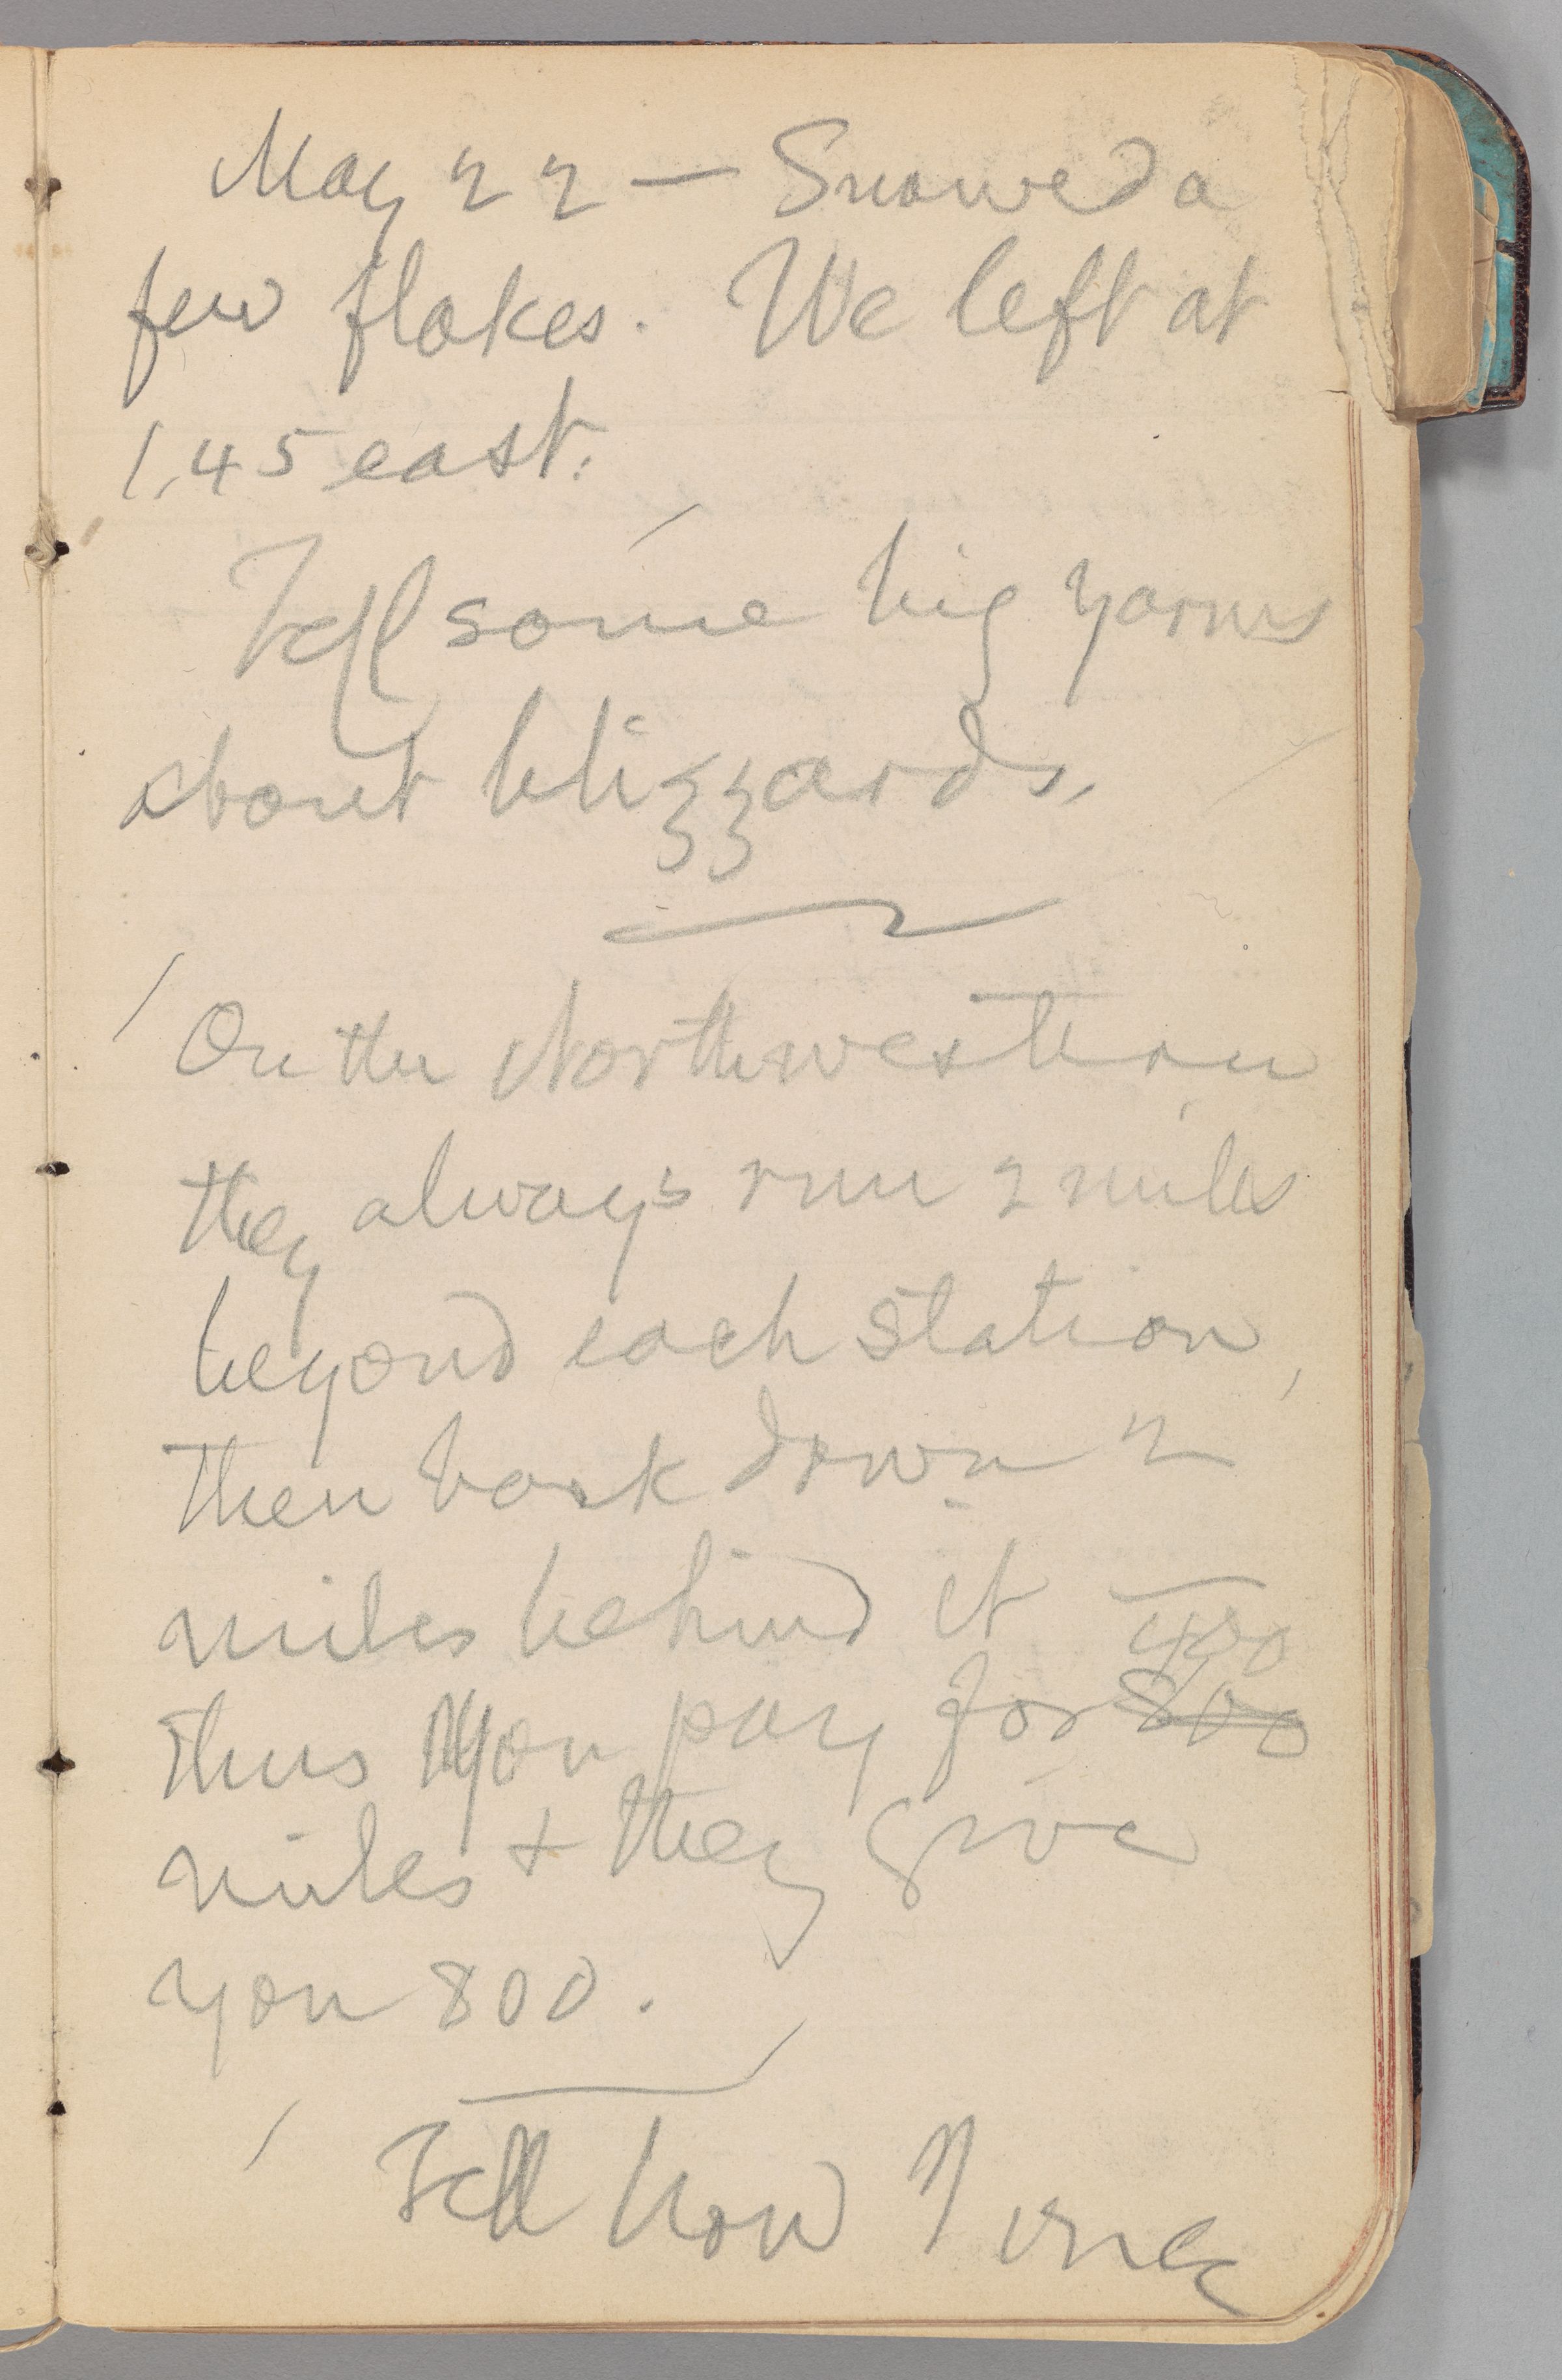 May 22 — Snowed a
few flakes. We left at
1.45 east.
Tell some big yarns
about blizzards,
On the Northwestern
they always run 2 miles
beyond each station,
then back down 2
miles behind it
400
thus you pay for 800
miles + they give
you 800.
Tell how